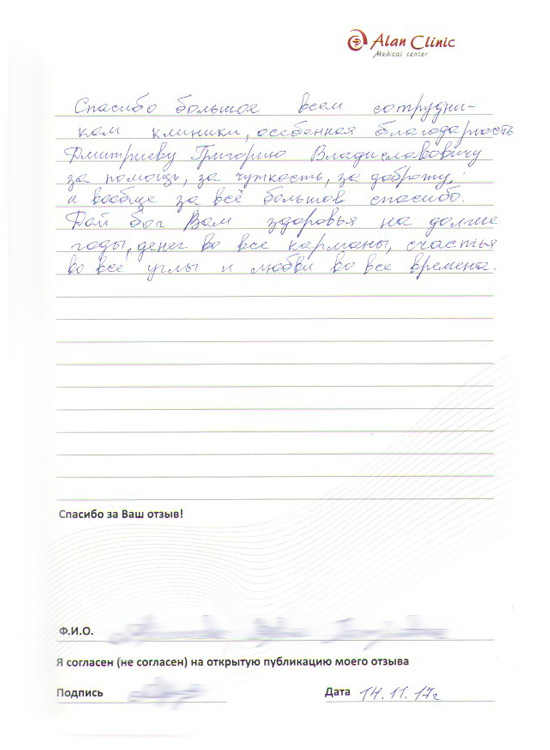 Alan Clinic
Medical center
Спасибо большое всем сотрудни-
кам клиники, особенная благодарность
Дмитриеву Григорию Владиславовичу
за помощь, за чуткость, за доброту,
и вообще за всё большое спасибо.
Дай бог Вам здоровья на долгие
годы, денег во все карманы, счастья
во все углы и любви во все времена.
Спасибо за Ваш отзыв!
Ф.И.О.
Я согласен (не согласен) на открытую публикацию моего отзыва
Подпись Дата 14.11.17г